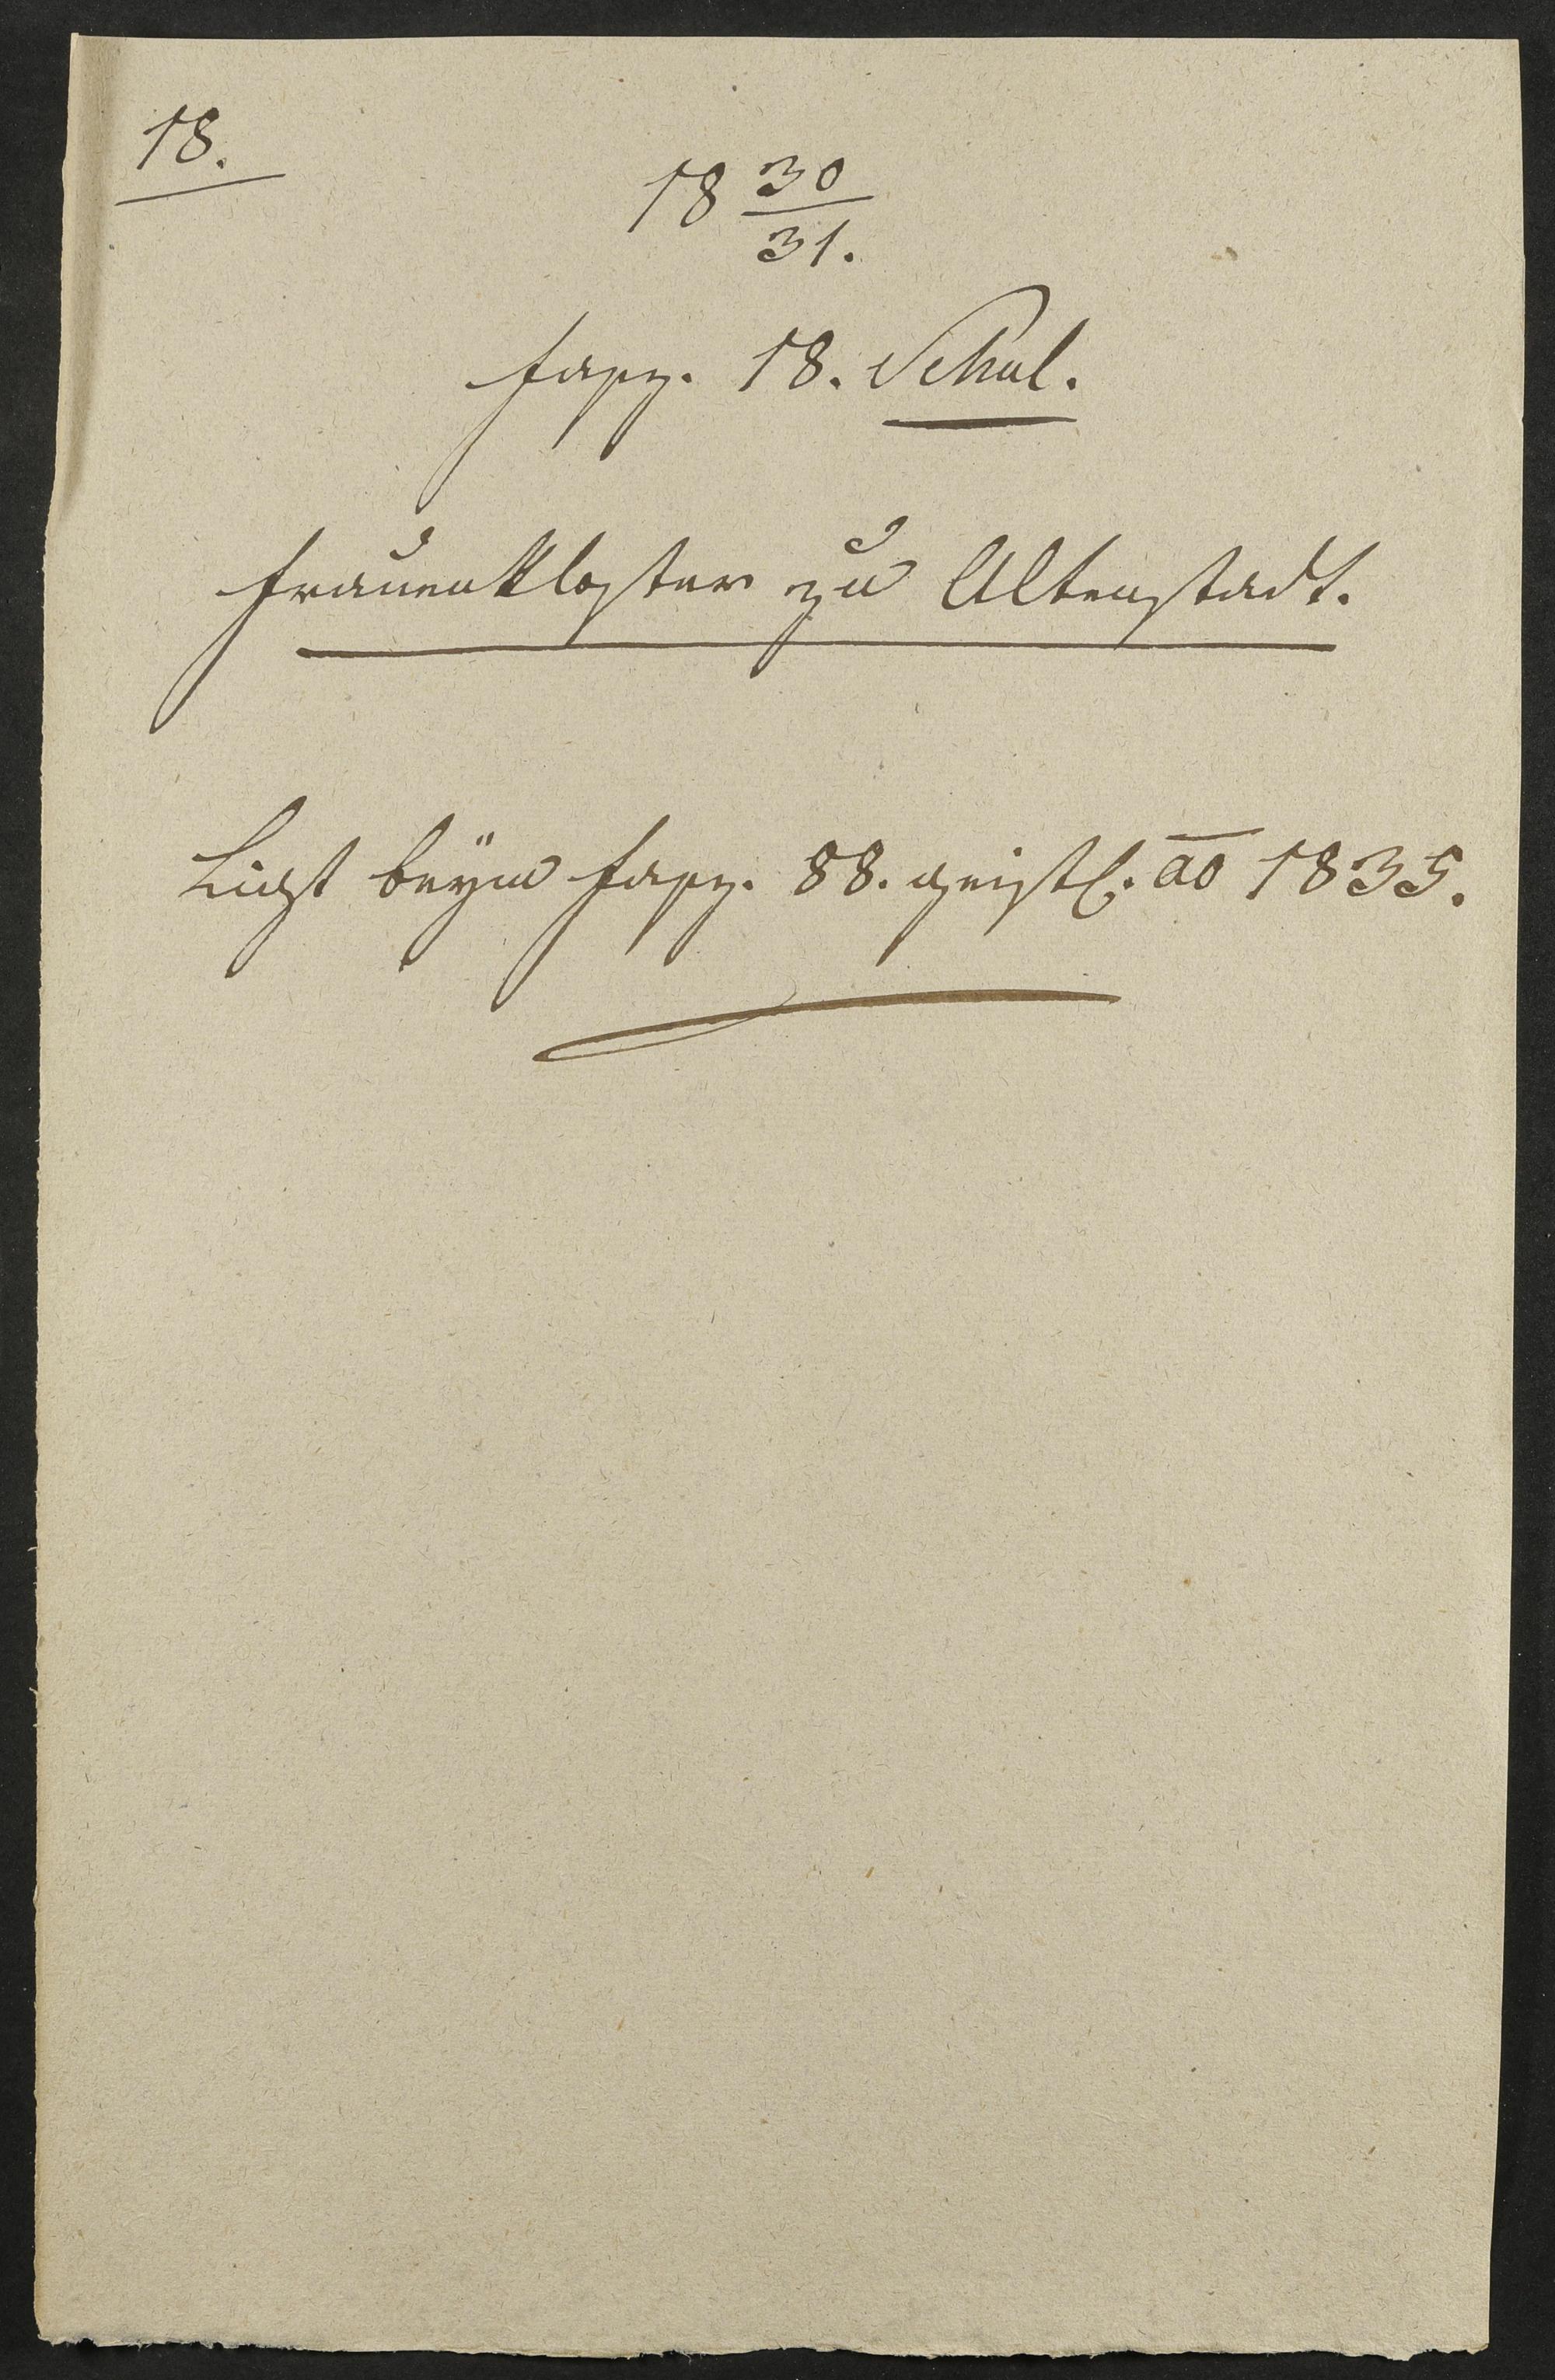 18.
18 30/31.
Fasz. 18. Schul.
Frauenkloster zu Altenstadt.
Ligt beym Fasz. 88. geistl. ao 1835.